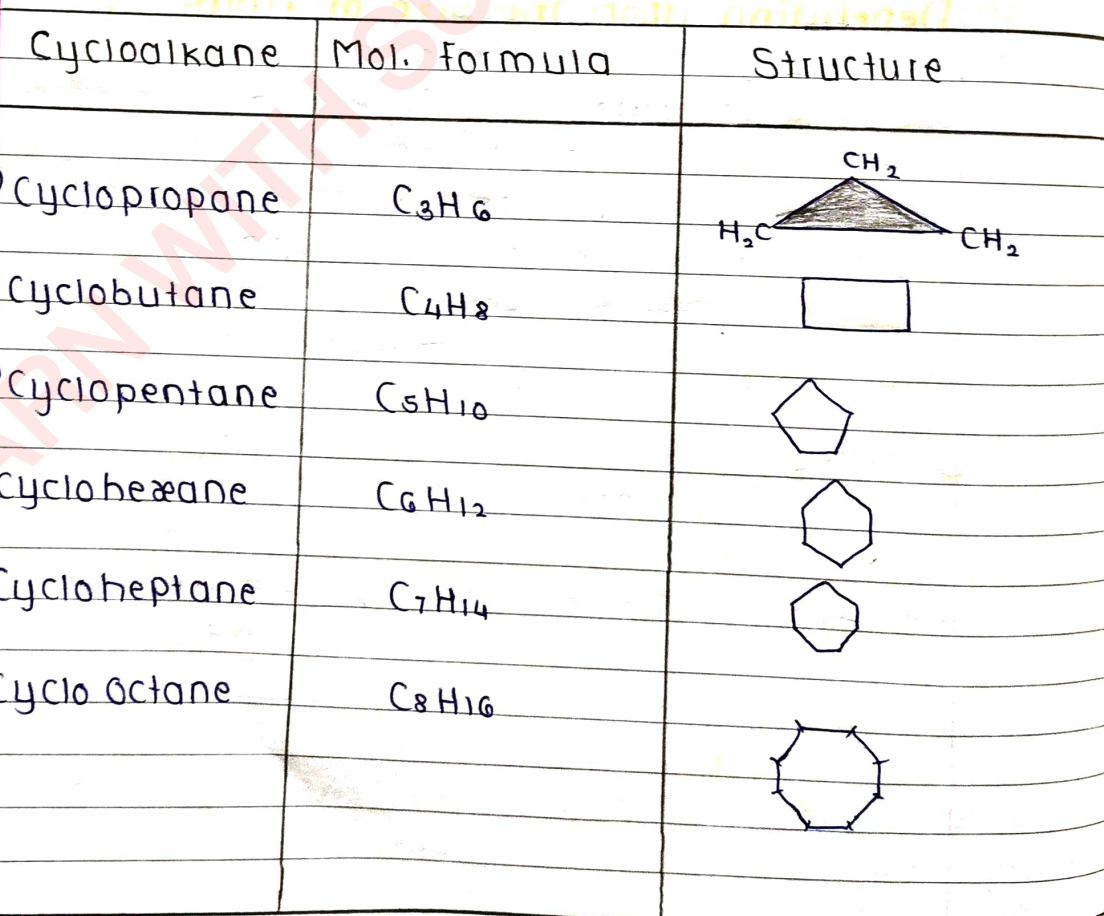 Cycloalkane Mol. formula Structure
CH2
Cyclopropane C3H6 H2C CH2
Cyclobutane C4H8
Cyclopentane C5H10
Cyclohexane C6H12
Cycloheptane C7H14
Cyclo octane C8H16